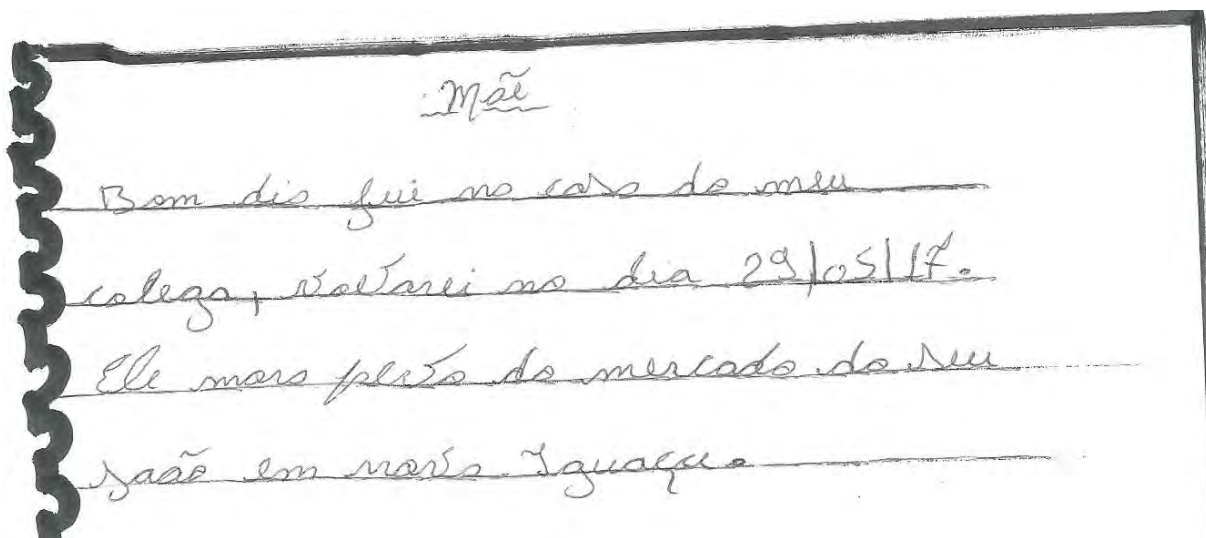 Mãe
Bom dia fui na casa do meu
colega, voltarei no dia 29/05/17.
Ele mora perto do mercado do seu
João em nova Iguaçu.